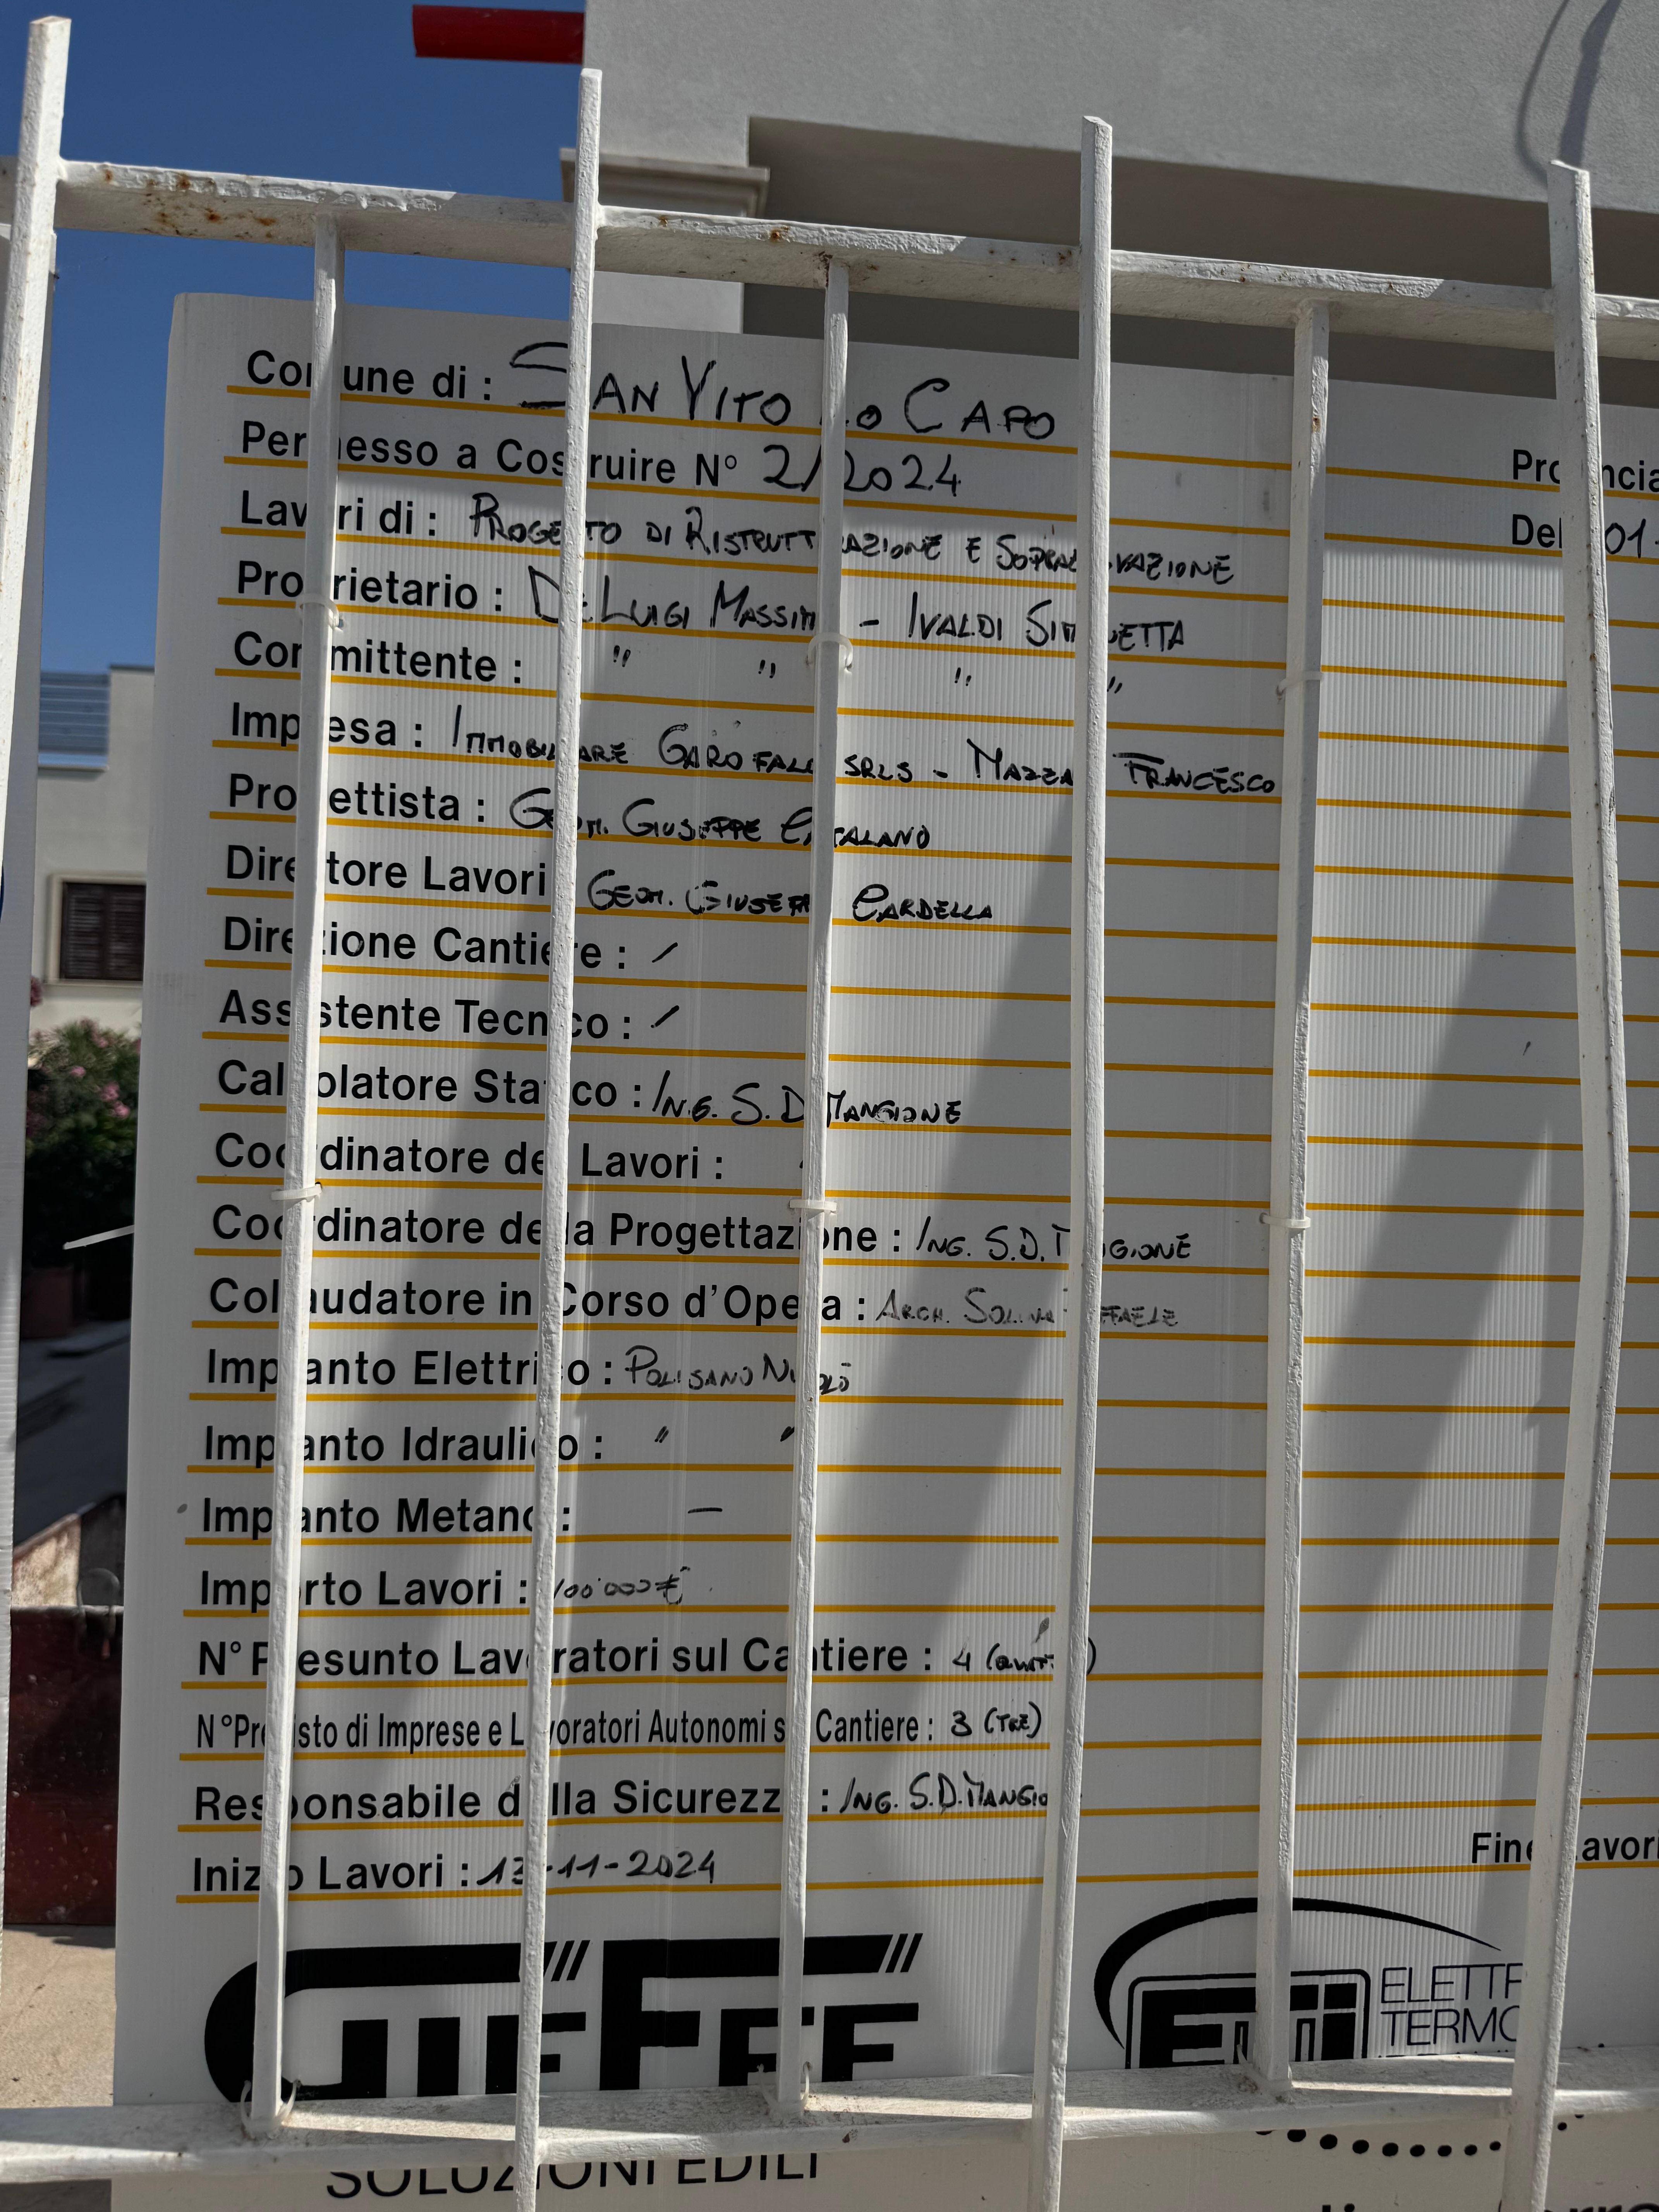 Comune di : SAN VITO LO CAPO
Permesso a Costruire N° 2/2024
Provincia
Lavori di : PROGETTO DI RISTRUTTURAZIONE E SOPRAELEVAZIONE
Del 01-
Proprietario : DE LUIGI MASSIMO - IVALDI SIMONETTA
Committente : " " " "
Impresa : IMMOBILIARE GAROFALO SRLS - MAZZARA FRANCESCO
Progettista : GEOM. GIUSEPPE CATALANO
Direttore Lavori GEOM. GIUSEPPE CARDELLA
Direzione Cantiere : /
Assistente Tecnico : /
Calcolatore Statico : ING. S.D. MANGIONE
Coordinatore dei Lavori :
Coordinatore della Progettazione : ING. S.D. MANGIONE
Collaudatore in Corso d'Opera : ARCH. SOLINA RAFFAELE
Impianto Elettrico : POLISANO NICOLÒ
Impianto Idraulico : " "
Impianto Metano : —
Importo Lavori : 100'000 €
N° Presunto Lavoratori sul Cantiere : 4 (QUATTRO)
N° Previsto di Imprese e Lavoratori Autonomi sul Cantiere : 3 (TRE)
Responsabile della Sicurezza : ING. S.D. MANGIONE
Inizio Lavori : 13-11-2024
Fine Lavori
GIEFFE
SOLUZIONI EDILI
ELETTR
TERMO